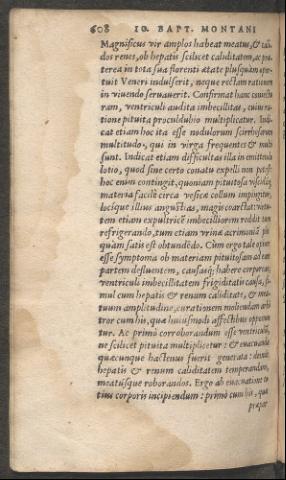 608 IO. BAPT. MONTANI
Magnificus vir amplos habeat meatus, & cali-
dos renes, ob hepatis scilicet caliditatem, ac præ-
terea in tota sua florenti ætate plusquàm opor-
tuit Veneri indulserit, neque rectam rationem
in viuendo seruauerit. Confirmat hanc coniectu
ram, ventriculi audita imbecillitas, cuius ra-
tione pituita proculdubio multiplicatur. Indi-
cat etiam hoc ita esse nodulorum scirrhosorum
multitudo, qui in virga frequentes & multi
sunt. Indicat etiam difficultas illa in emittendo
lotio, quod sine certo conatu expelli non potest:
hoc enim contingit, quoniam pituitosa viscidáq;
materia facilè circa vesicæ collum impingitur,
locísque illius angustias, magis coarctat: viru-
tem etiam expultricem imbecilliorem reddit tum
refrigerando, tum etiam vrinæ acrimoniā plus
quàm satis est obtundēdo. Cùm ergo tale opiner
esse symptoma ob materiam pituitosam ad eam
partem defluentem, causasq; habere corporeas,
ventriculi imbecillitatem frigiditatis causa, si-
mul cum hepatis & renum caliditate, & mea-
tuum amplitudine, curationem moliendam arbi
tror cum his, quæ huiusmodi affectibus opponun
tur. Ac primò corroborandum esse ventriculū,
ne scilicet pituita multiplicetur: & euacuanda
quæcunque hactenus fuerit generata: deinde
hepatis & renum caliditatem temperandam,
meatúsque roborandos. Ergo ab euacuatione to-
tius corporis incipiendum: primò cum his, quæ
præpar